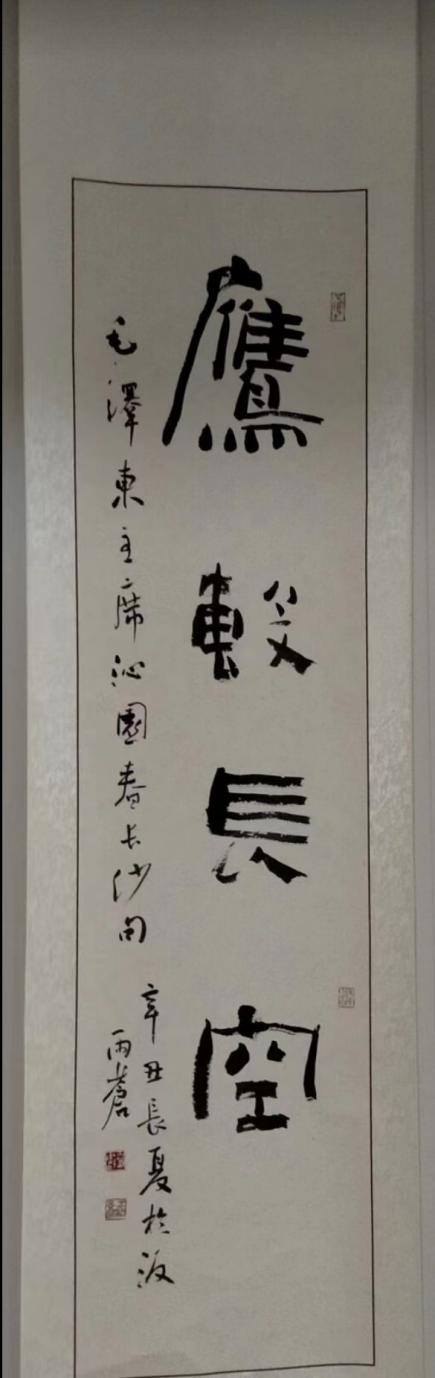 鷹擊長空
毛澤東主席沁園春長沙句
辛丑長夏於海
雨蒼